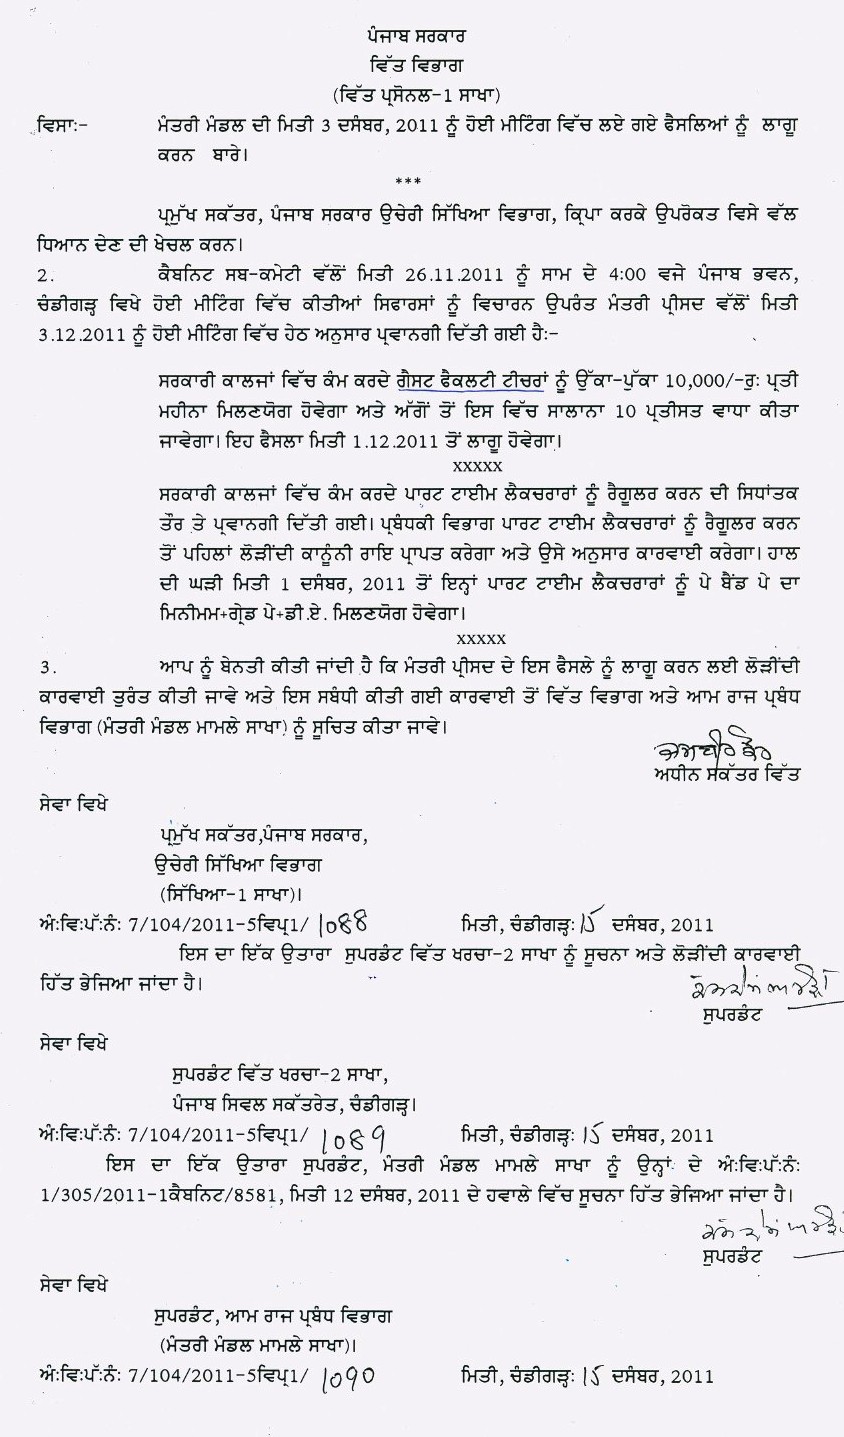 ਪੰਜਾਬ ਸਰਕਾਰ
ਵਿੱਤ ਵਿਭਾਗ
(ਵਿੱਤ ਪ੍ਰਸੋਨਲ-1 ਸਾਖਾ)
ਵਿਸਾ:- ਮੰਤਰੀ ਮੰਡਲ ਦੀ ਮਿਤੀ 3 ਦਸੰਬਰ, 2011 ਨੂੰ ਹੋਈ ਮੀਟਿੰਗ ਵਿੱਚ ਲਏ ਗਏ ਫੈਸਲਿਆਂ ਨੂੰ ਲਾਗੂ
ਕਰਨ ਬਾਰੇ।
***
ਪ੍ਰਮੁੱਖ ਸਕੱਤਰ, ਪੰਜਾਬ ਸਰਕਾਰ ਉਚੇਰੀ ਸਿੱਖਿਆ ਵਿਭਾਗ, ਕ੍ਰਿਪਾ ਕਰਕੇ ਉਪਰੋਕਤ ਵਿਸੇ ਵੱਲ
ਧਿਆਨ ਦੇਣ ਦੀ ਖੇਚਲ ਕਰਨ।
2. ਕੈਬਨਿਟ ਸਬ-ਕਮੇਟੀ ਵੱਲੋਂ ਮਿਤੀ 26.11.2011 ਨੂੰ ਸਾਮ ਦੇ 4:00 ਵਜੇ ਪੰਜਾਬ ਭਵਨ,
ਚੰਡੀਗੜ੍ਹ ਵਿਖੇ ਹੋਈ ਮੀਟਿੰਗ ਵਿੱਚ ਕੀਤੀਆਂ ਸਿਫਾਰਸਾਂ ਨੂੰ ਵਿਚਾਰਨ ਉਪਰੰਤ ਮੰਤਰੀ ਪ੍ਰੀਸਦ ਵੱਲੋਂ ਮਿਤੀ
3.12.2011 ਨੂੰ ਹੋਈ ਮੀਟਿੰਗ ਵਿੱਚ ਹੇਠ ਅਨੁਸਾਰ ਪ੍ਰਵਾਨਗੀ ਦਿੱਤੀ ਗਈ ਹੈ:-
ਸਰਕਾਰੀ ਕਾਲਜਾਂ ਵਿੱਚ ਕੰਮ ਕਰਦੇ ਗੈਸਟ ਫੈਕਲਟੀ ਟੀਚਰਾਂ ਨੂੰ ਉੱਕਾ-ਪੁੱਕਾ 10,000/-ਰੁ: ਪ੍ਰਤੀ
ਮਹੀਨਾ ਮਿਲਣਯੋਗ ਹੋਵੇਗਾ ਅਤੇ ਅੱਗੋਂ ਤੋਂ ਇਸ ਵਿੱਚ ਸਾਲਾਨਾ 10 ਪ੍ਰਤੀਸਤ ਵਾਧਾ ਕੀਤਾ
ਜਾਵੇਗਾ। ਇਹ ਫੈਸਲਾ ਮਿਤੀ 1.12.2011 ਤੋਂ ਲਾਗੂ ਹੋਵੇਗਾ।
xxxxx
ਸਰਕਾਰੀ ਕਾਲਜਾਂ ਵਿੱਚ ਕੰਮ ਕਰਦੇ ਪਾਰਟ ਟਾਈਮ ਲੈਕਚਰਾਰਾਂ ਨੂੰ ਰੈਗੂਲਰ ਕਰਨ ਦੀ ਸਿਧਾਂਤਕ
ਤੌਰ ਤੇ ਪ੍ਰਵਾਨਗੀ ਦਿੱਤੀ ਗਈ। ਪ੍ਰਬੰਧਕੀ ਵਿਭਾਗ ਪਾਰਟ ਟਾਈਮ ਲੈਕਚਰਾਰਾਂ ਨੂੰ ਰੈਗੂਲਰ ਕਰਨ
ਤੋਂ ਪਹਿਲਾਂ ਲੋੜੀਂਦੀ ਕਾਨੂੰਨੀ ਰਾਇ ਪ੍ਰਾਪਤ ਕਰੇਗਾ ਅਤੇ ਉਸੇ ਅਨੁਸਾਰ ਕਾਰਵਾਈ ਕਰੇਗਾ। ਹਾਲ
ਦੀ ਘੜੀ ਮਿਤੀ 1 ਦਸੰਬਰ, 2011 ਤੋਂ ਇਨ੍ਹਾਂ ਪਾਰਟ ਟਾਈਮ ਲੈਕਚਰਾਰਾਂ ਨੂੰ ਪੇ ਬੈਂਡ ਪੇ ਦਾ
ਮਿਨੀਮਮ+ਗ੍ਰੇਡ ਪੇ+ਡੀ.ਏ. ਮਿਲਣਯੋਗ ਹੋਵੇਗਾ।
xxxxx
3. ਆਪ ਨੂੰ ਬੇਨਤੀ ਕੀਤੀ ਜਾਂਦੀ ਹੈ ਕਿ ਮੰਤਰੀ ਪ੍ਰੀਸਦ ਦੇ ਇਸ ਫੈਸਲੇ ਨੂੰ ਲਾਗੂ ਕਰਨ ਲਈ ਲੋੜੀਂਦੀ
ਕਾਰਵਾਈ ਤੁਰੰਤ ਕੀਤੀ ਜਾਵੇ ਅਤੇ ਇਸ ਸਬੰਧੀ ਕੀਤੀ ਗਈ ਕਾਰਵਾਈ ਤੋਂ ਵਿੱਤ ਵਿਭਾਗ ਅਤੇ ਆਮ ਰਾਜ ਪ੍ਰਬੰਧ
ਵਿਭਾਗ (ਮੰਤਰੀ ਮੰਡਲ ਮਾਮਲੇ ਸਾਖਾ) ਨੂੰ ਸੂਚਿਤ ਕੀਤਾ ਜਾਵੇ।
ਅਧੀਨ ਸਕੱਤਰ ਵਿੱਤ
ਸੇਵਾ ਵਿਖੇ
ਪ੍ਰਮੁੱਖ ਸਕੱਤਰ,ਪੰਜਾਬ ਸਰਕਾਰ,
ਉਚੇਰੀ ਸਿੱਖਿਆ ਵਿਭਾਗ
(ਸਿੱਖਿਆ-1 ਸਾਖਾ)।
ਅੰ:ਵਿ:ਪੱ:ਨੰ: 7/104/2011-5ਵਿਪ੍ਰ1/ 1088 ਮਿਤੀ, ਚੰਡੀਗੜ੍ਹ: 15 ਦਸੰਬਰ, 2011
ਇਸ ਦਾ ਇੱਕ ਉਤਾਰਾ ਸੁਪਰਡੰਟ ਵਿੱਤ ਖਰਚਾ-2 ਸਾਖਾ ਨੂੰ ਸੂਚਨਾ ਅਤੇ ਲੋੜੀਂਦੀ ਕਾਰਵਾਈ
ਹਿੱਤ ਭੇਜਿਆ ਜਾਂਦਾ ਹੈ।
ਸੁਪਰਡੰਟ
ਸੇਵਾ ਵਿਖੇ
ਸੁਪਰਡੰਟ ਵਿੱਤ ਖਰਚਾ-2 ਸਾਖਾ,
ਪੰਜਾਬ ਸਿਵਲ ਸਕੱਤਰੇਤ, ਚੰਡੀਗੜ੍ਹ।
ਅੰ:ਵਿ:ਪੱ:ਨੰ: 7/104/2011-5ਵਿਪ੍ਰ1/ 1089 ਮਿਤੀ, ਚੰਡੀਗੜ੍ਹ: 15 ਦਸੰਬਰ, 2011
ਇਸ ਦਾ ਇੱਕ ਉਤਾਰਾ ਸੁਪਰਡੰਟ, ਮੰਤਰੀ ਮੰਡਲ ਮਾਮਲੇ ਸਾਖਾ ਨੂੰ ਉਨ੍ਹਾਂ ਦੇ ਅੰ:ਵਿ:ਪੱ:ਨੰ:
1/305/2011-1ਕੈਬਨਿਟ/8581, ਮਿਤੀ 12 ਦਸੰਬਰ, 2011 ਦੇ ਹਵਾਲੇ ਵਿੱਚ ਸੂਚਨਾ ਹਿੱਤ ਭੇਜਿਆ ਜਾਂਦਾ ਹੈ।
ਸੁਪਰਡੰਟ
ਸੇਵਾ ਵਿਖੇ
ਸੁਪਰਡੰਟ, ਆਮ ਰਾਜ ਪ੍ਰਬੰਧ ਵਿਭਾਗ
(ਮੰਤਰੀ ਮੰਡਲ ਮਾਮਲੇ ਸਾਖਾ)।
ਅੰ:ਵਿ:ਪੱ:ਨੰ: 7/104/2011-5ਵਿਪ੍ਰ1/ 1090 ਮਿਤੀ, ਚੰਡੀਗੜ੍ਹ: 15 ਦਸੰਬਰ, 2011